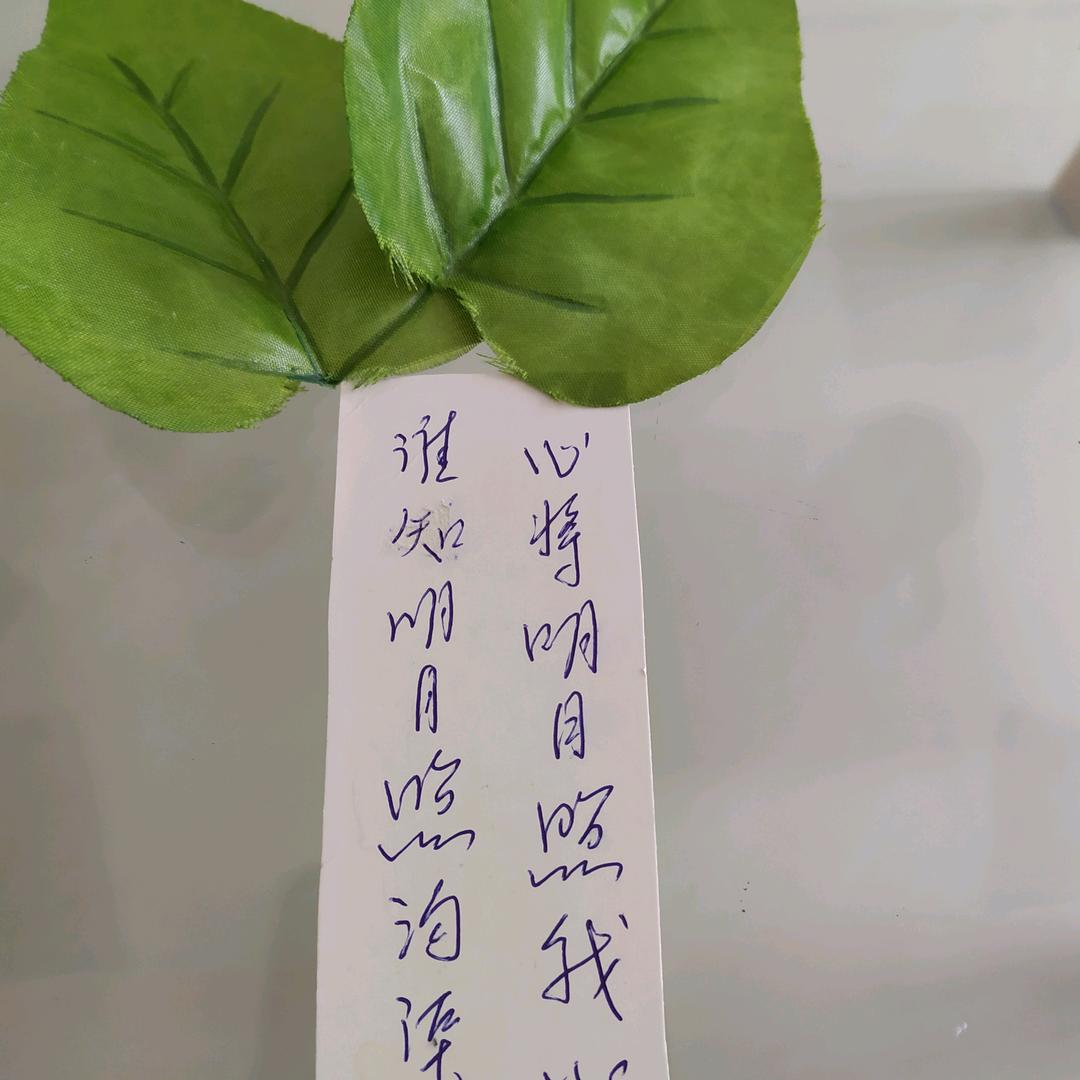 心将明月照我
谁知明月照沟渠